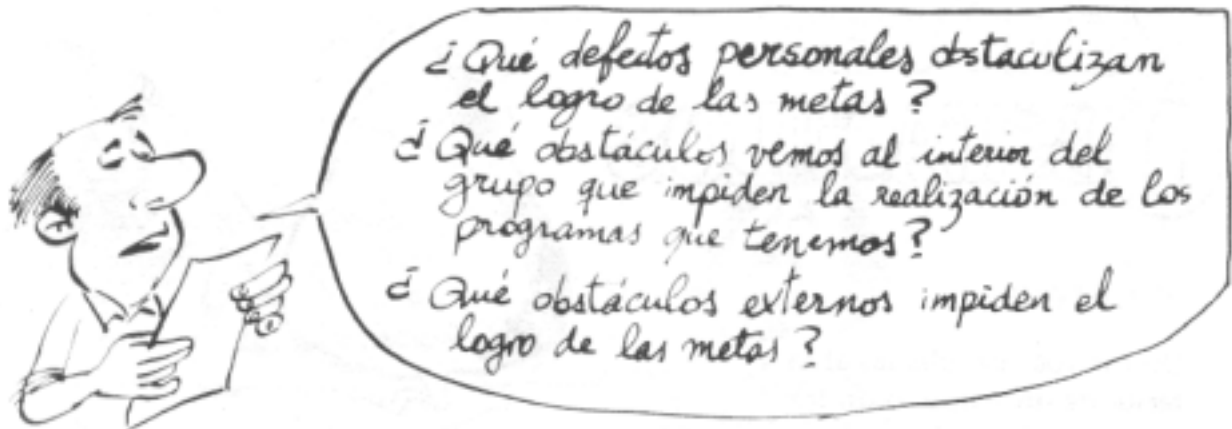 ¿Qué defectos personales obstaculizan
el logro de las metas?
¿Qué obstáculos vemos al interior del
grupo que impiden la realización de los
programas que tenemos?
¿Qué obstáculos externos impiden el
logro de las metas?